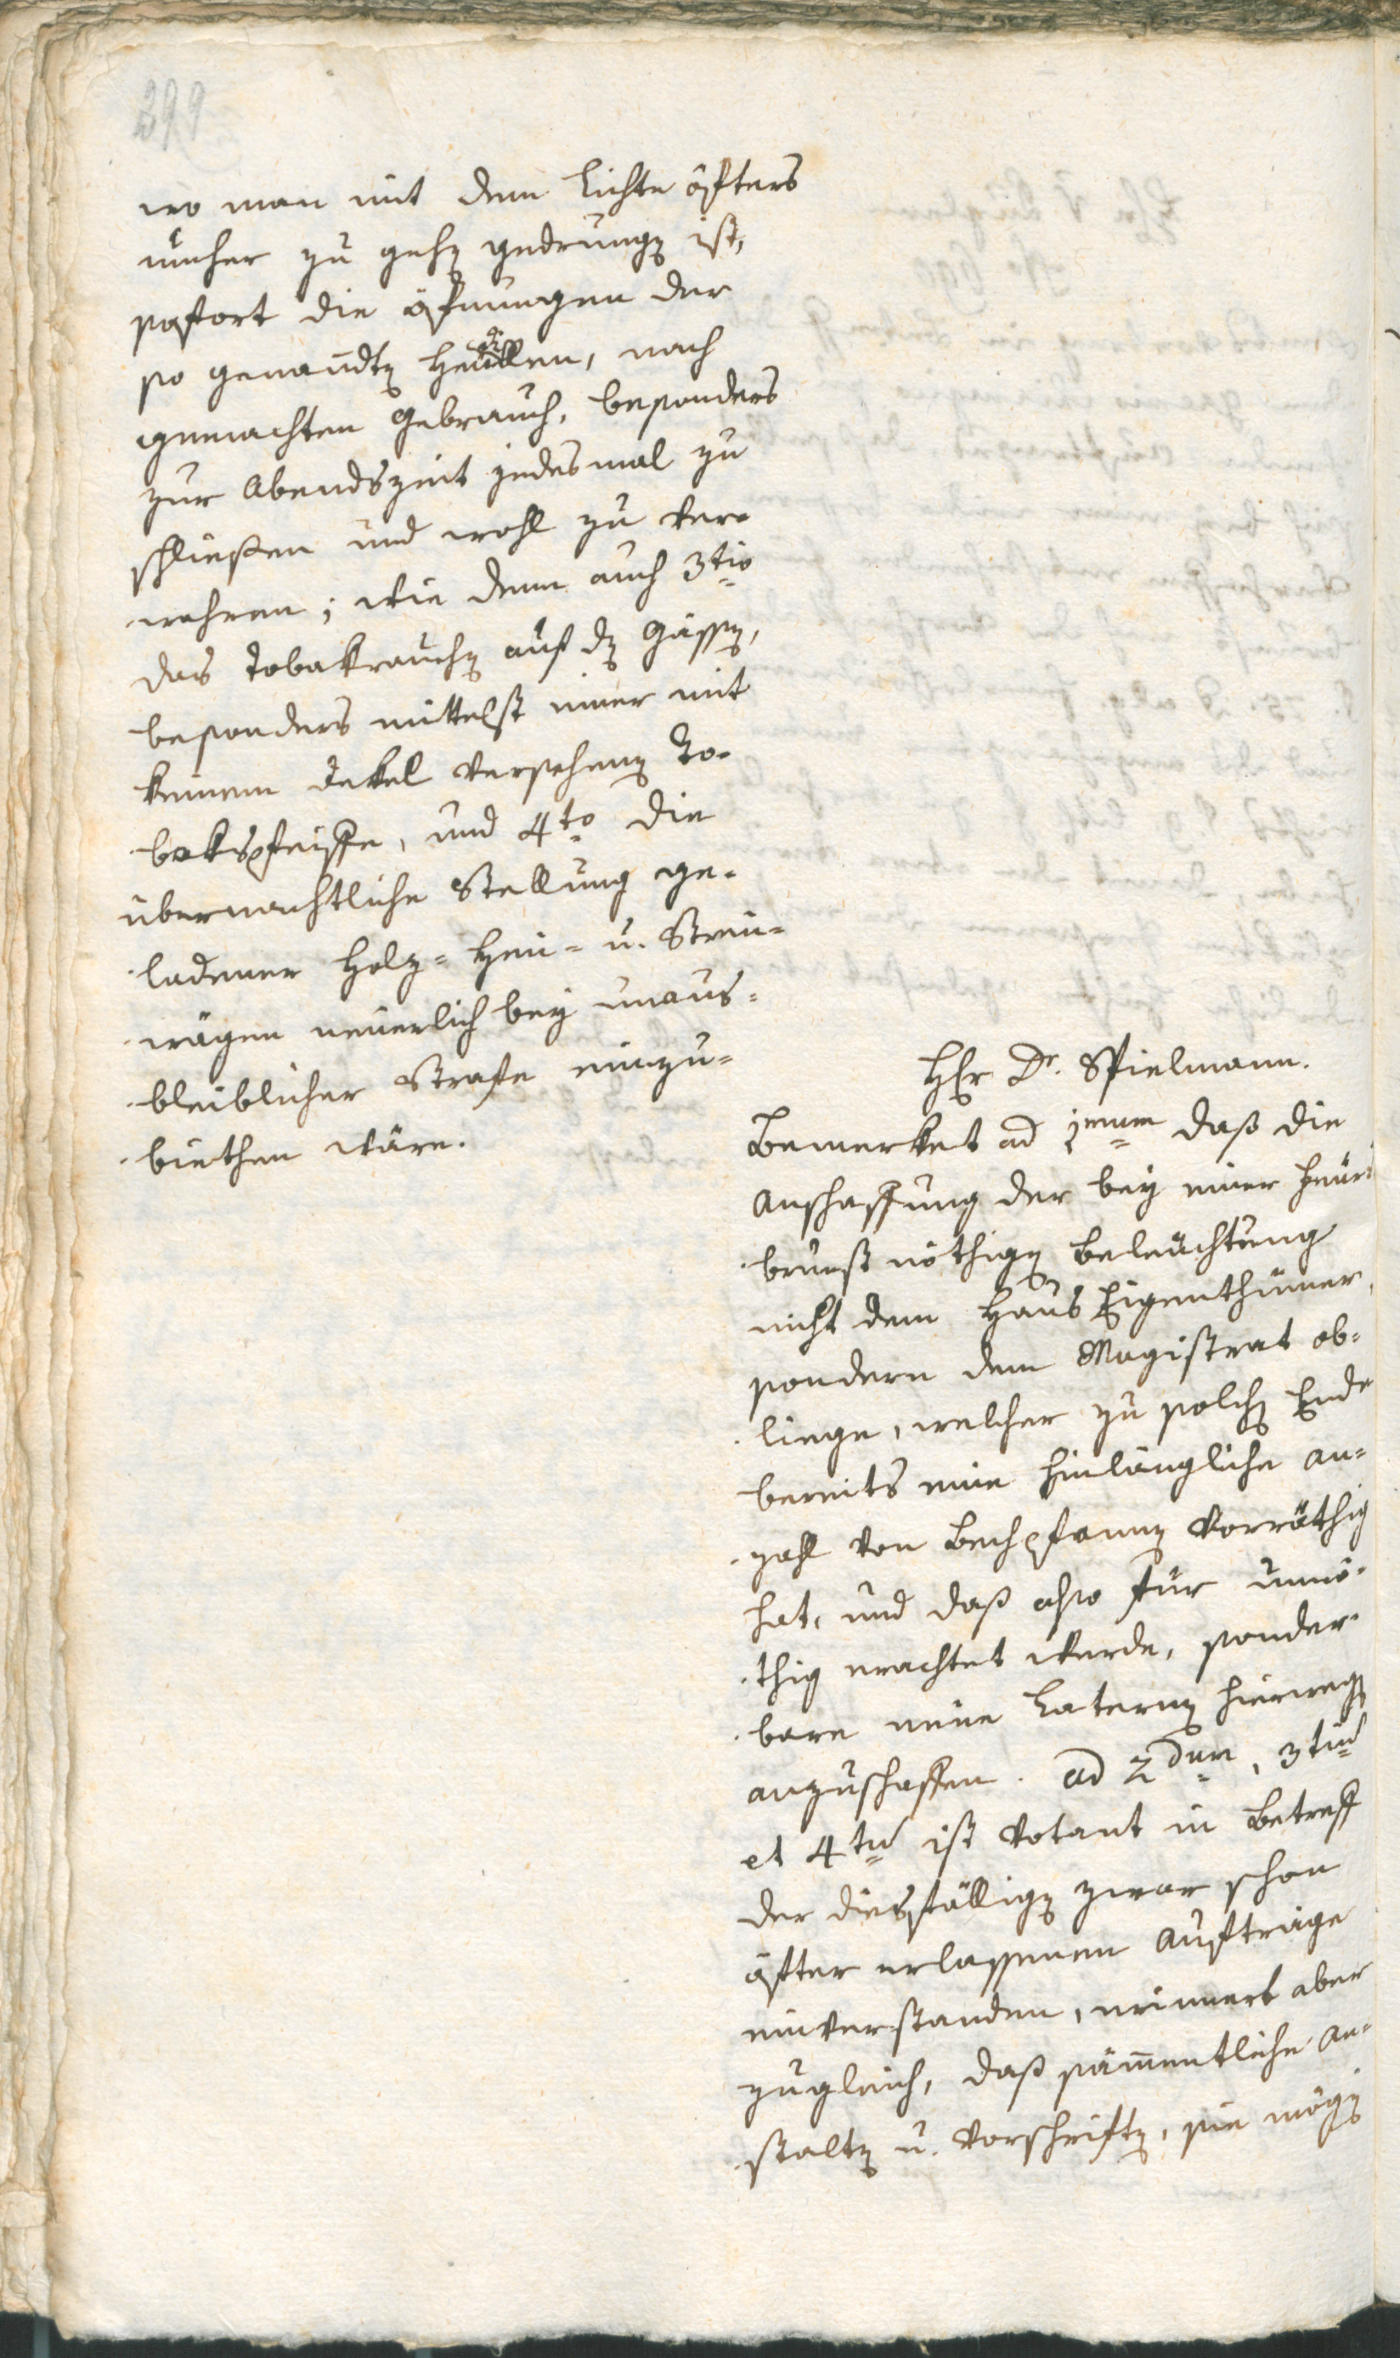 399
wo man mit dem Lichte öfters
umher zu gehen gedrungen ist,
sofort die öfnungen der
so genanndten Heüillen, nach
gemachten Gebrauch, besonders
zur Abendszeit jedesmal zu
schließen und wohl zu ver-
wahren; wie denn auch 3tio
das Tobakrauchen auf den Gässen,
besonders mittelst einer mit
keinem dekel versehenen To-
bakspfeiffe, und 4to die
übernachtliche Stellung ge-
ladener Holz- Heu- u. Streu-
wägen neuerlich bey unaus-
bleiblicher Strafe einzu-
biethen wäre.
HEr Dr. Spielmann.
Bemerket ad 1mum daß die
Anschaffung der bey einer Feuers
brunst nöthigen Beleuchtung
nicht dem Haus Eigenthümer,
sondern dem Magistrat ob-
liege, welcher zu solchen Ende
bereits eine hinlängliche An-
zahl von Bechpfannen vorräthig
hat, und daß also für unnö-
thig erachtet werde, sonder-
bare neue Laternen hierwegen
anzuschaffen. ad 2dum, 3tium
et 4tum ist Votant in Betreff
der diesfälligen zwar schon
öfter erlassenen Aufträge
einverstanden, erinnert aber
zugleich, daß sämmentliche An-
stalten u. Vorschriften, sie mögen